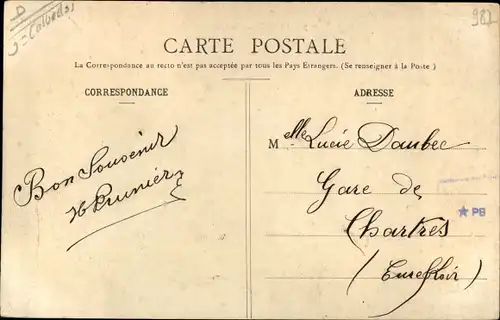 D
J = Calvados
987
CARTE POSTALE
La Correspondance au recto n'est pas acceptée par tous les Pays Etrangers. (Se renseigner à la Poste)
CORRESPONDANCE
Bon Souvenir
H Prunier
ADRESSE
Melle Lucie Daubec
Gare de
Chartres
(Eure & Loir)
PB